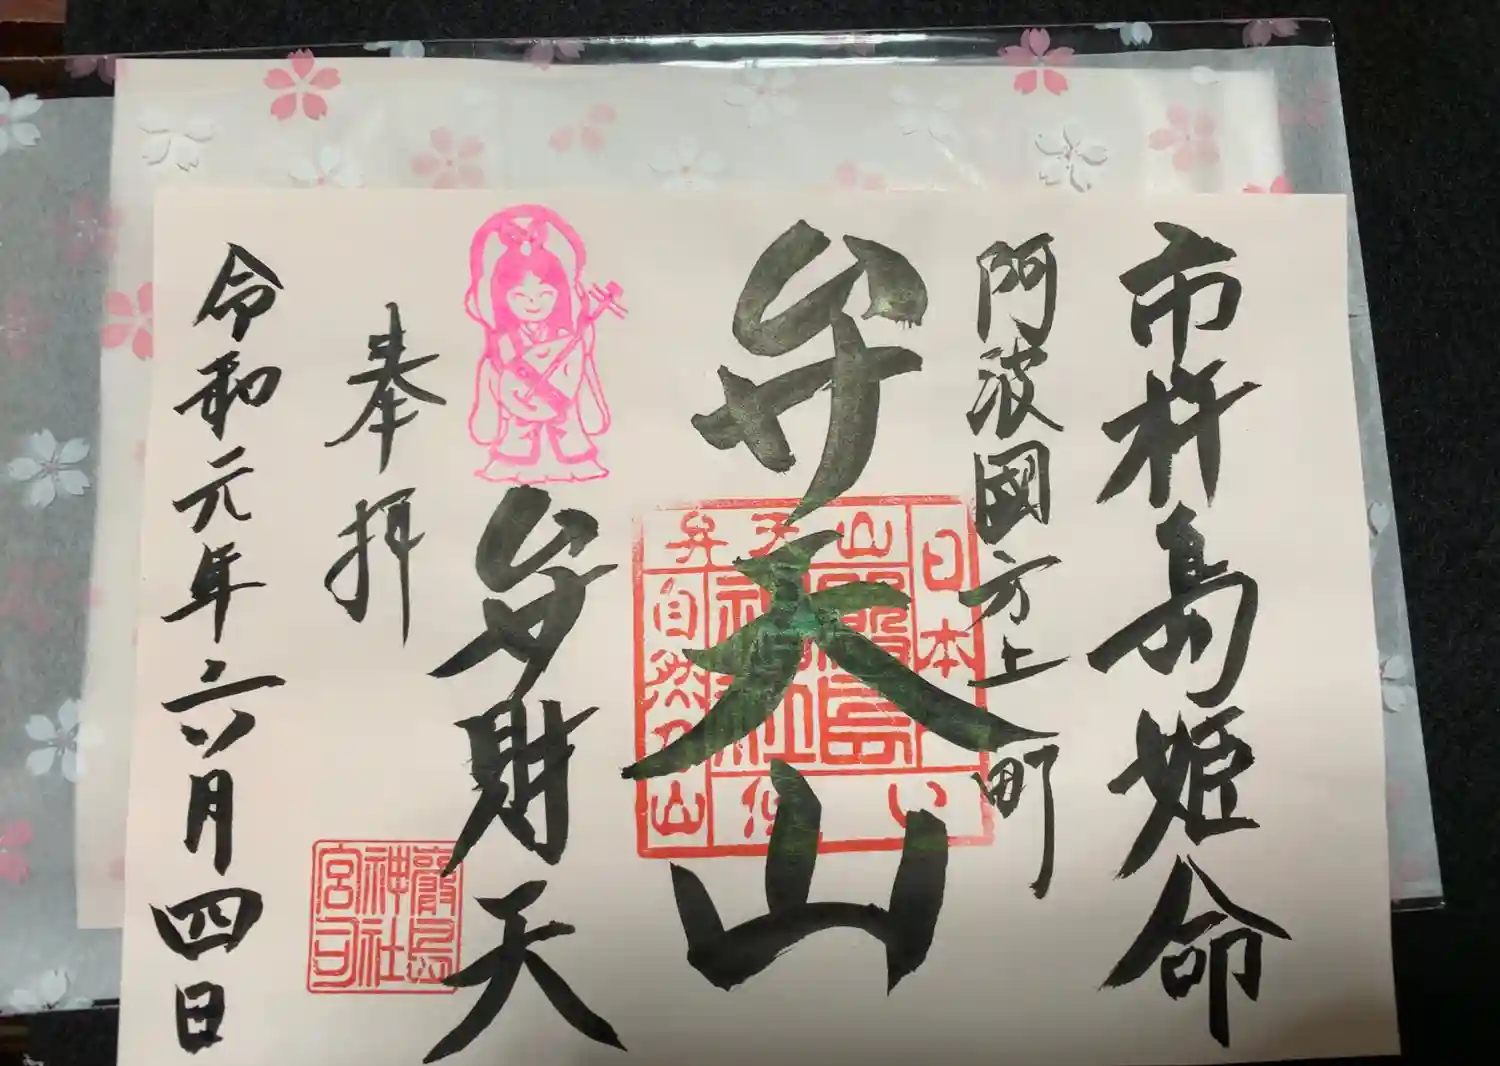 市杵島姫命
阿波國方上町
弁天山
弁財天
奉拝
令和元年六月四日
日本一
弁天山
自然乃山
厳島神社
厳島
神社
宮司